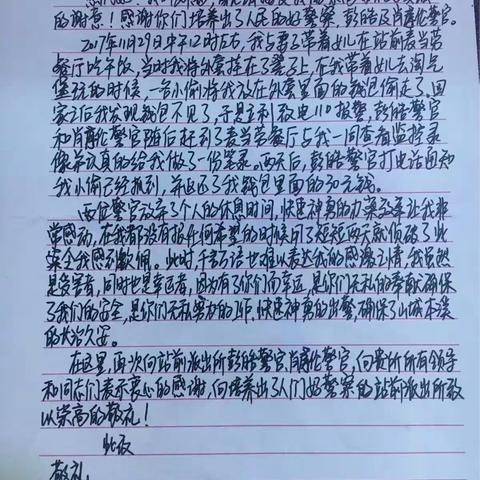 的谢意！感谢你们培养出了人民的好警察，彭皓及肖彦伦警官。
2017年11月29日中午12时左右，我与妻子带着女儿在站前麦当劳
餐厅吃午饭，当时我将外套挂在了凳子上，在我带着女儿去淘气
堡玩的时候，一名小偷将我放在外套里面的钱包偷走了，回
家之后我发现钱包不见了，于是立刻致电110报警，彭皓警官
和肖彦伦警官随后赶到了麦当劳餐厅与我一同查看监控录
像并认真的给我做了一份笔录。两天后，彭皓警官打电话通知
我小偷已经抓到，并返还了我钱包里面的30元钱。
两位警官放弃了个人的休息时间，快速神勇的办案效率让我非
常感动，在我都没有报任何希望的时候用了短短两天就侦破了此
案令我感到钦佩。此时千言万语也难以表达我的感激之情，我虽然
是受害者，同时也是幸运者，因为有了你们而幸运，是你们无私的奉献确保
了我们的安全，是你们无私努力的工作，快速神勇的出警，确保了山城本溪
的长治久安。
在这里，再次向站前派出所彭皓警官，肖彦伦警官，向贵所所有领导
和同志们表示衷心的感谢，向培养出了人们好警察的站前派出所致
以崇高的敬礼！
此致
敬礼